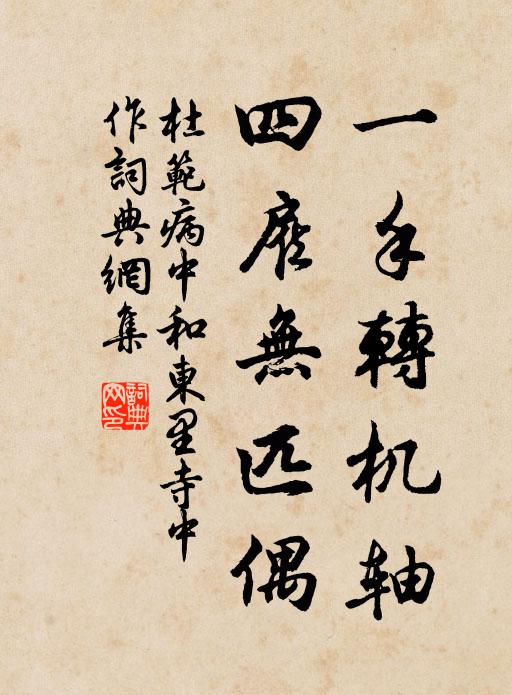 一手轉机軸
四無匹偶
杜範病中和東里寺中
作詞典網集
詞典网印